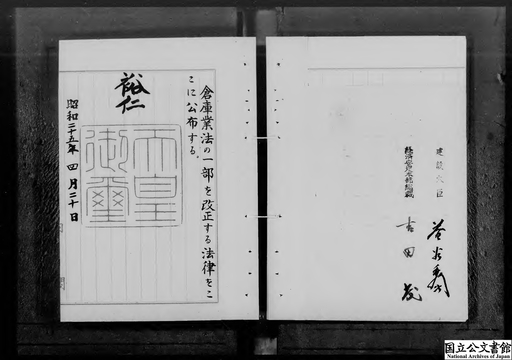 建設大臣
益谷秀次
経済安定本部総裁
吉田茂
倉庫業法の一部を改正する法律をこ
こに公布する。
裕仁
天皇
御璽
昭和二十五年四月二十日
国立公文書館
National Archives of Japan